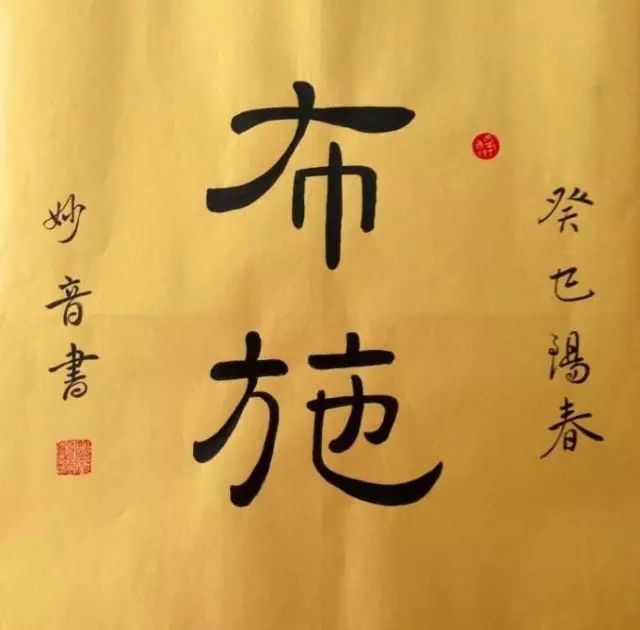 癸巳陽春
布施
妙音書